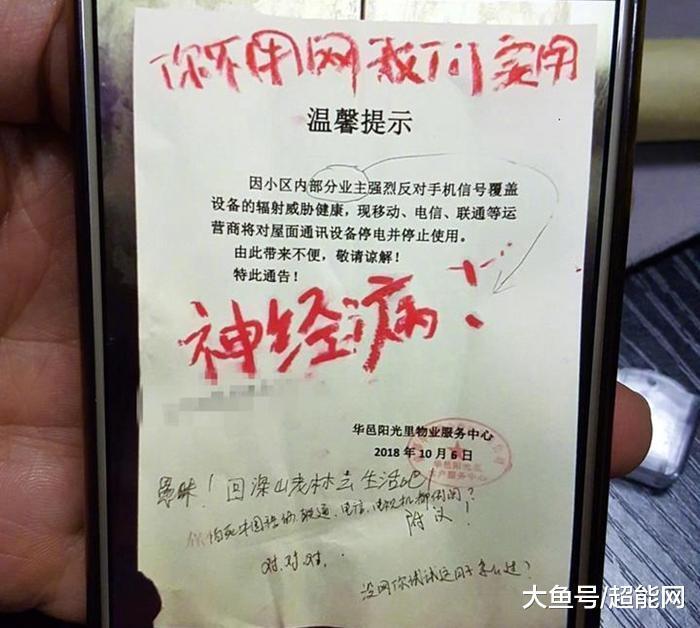 你不用网我们实用
温馨提示
因小区内部分业主强烈反对手机信号覆盖
设备的辐射威胁健康，现移动、电信、联通等运
营商将对屋面通讯设备停电并停止使用。
由此带来不便，敬请谅解！
特此通告！
神经病！
华邑阳光里物业服务中心
2018年10月6日
华邑阳光里
客户服务中心
愚昧！回深山老林去生活吧！
联通、电信、电视机都倒闭？
附议！
对、对、对、
没网你试试这日子怎么过？
大鱼号/超能网